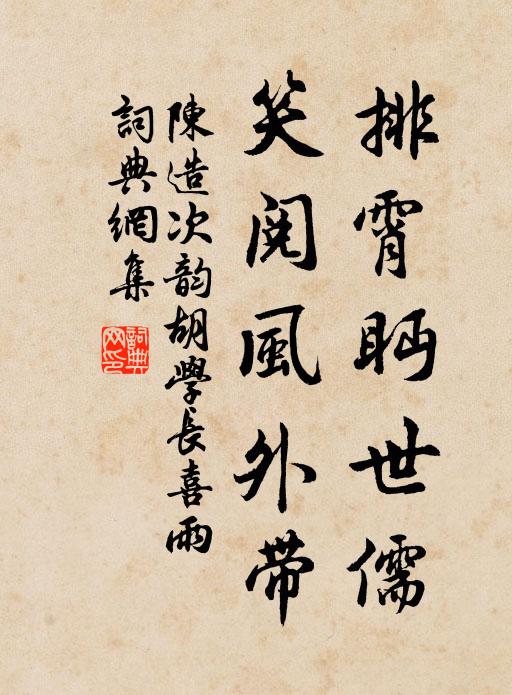 排霄眄世儒
笑閱風外帶
陳造次韵胡學長喜雨
詞典網集
詞典网印